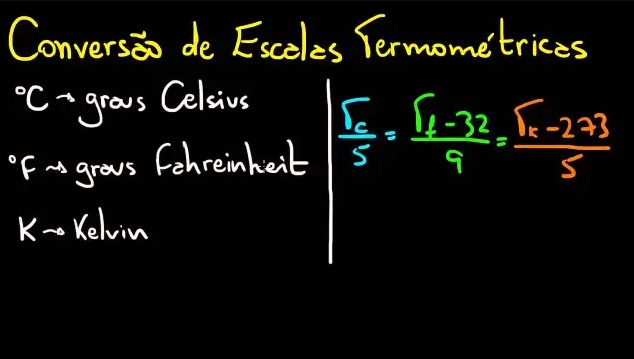 Conversão de Escalas Termométricas
°C → graus Celsius
°F → graus Fahreinheit
K → Kelvin
Tc/5 = Tf-32/9 = Tk-273/5